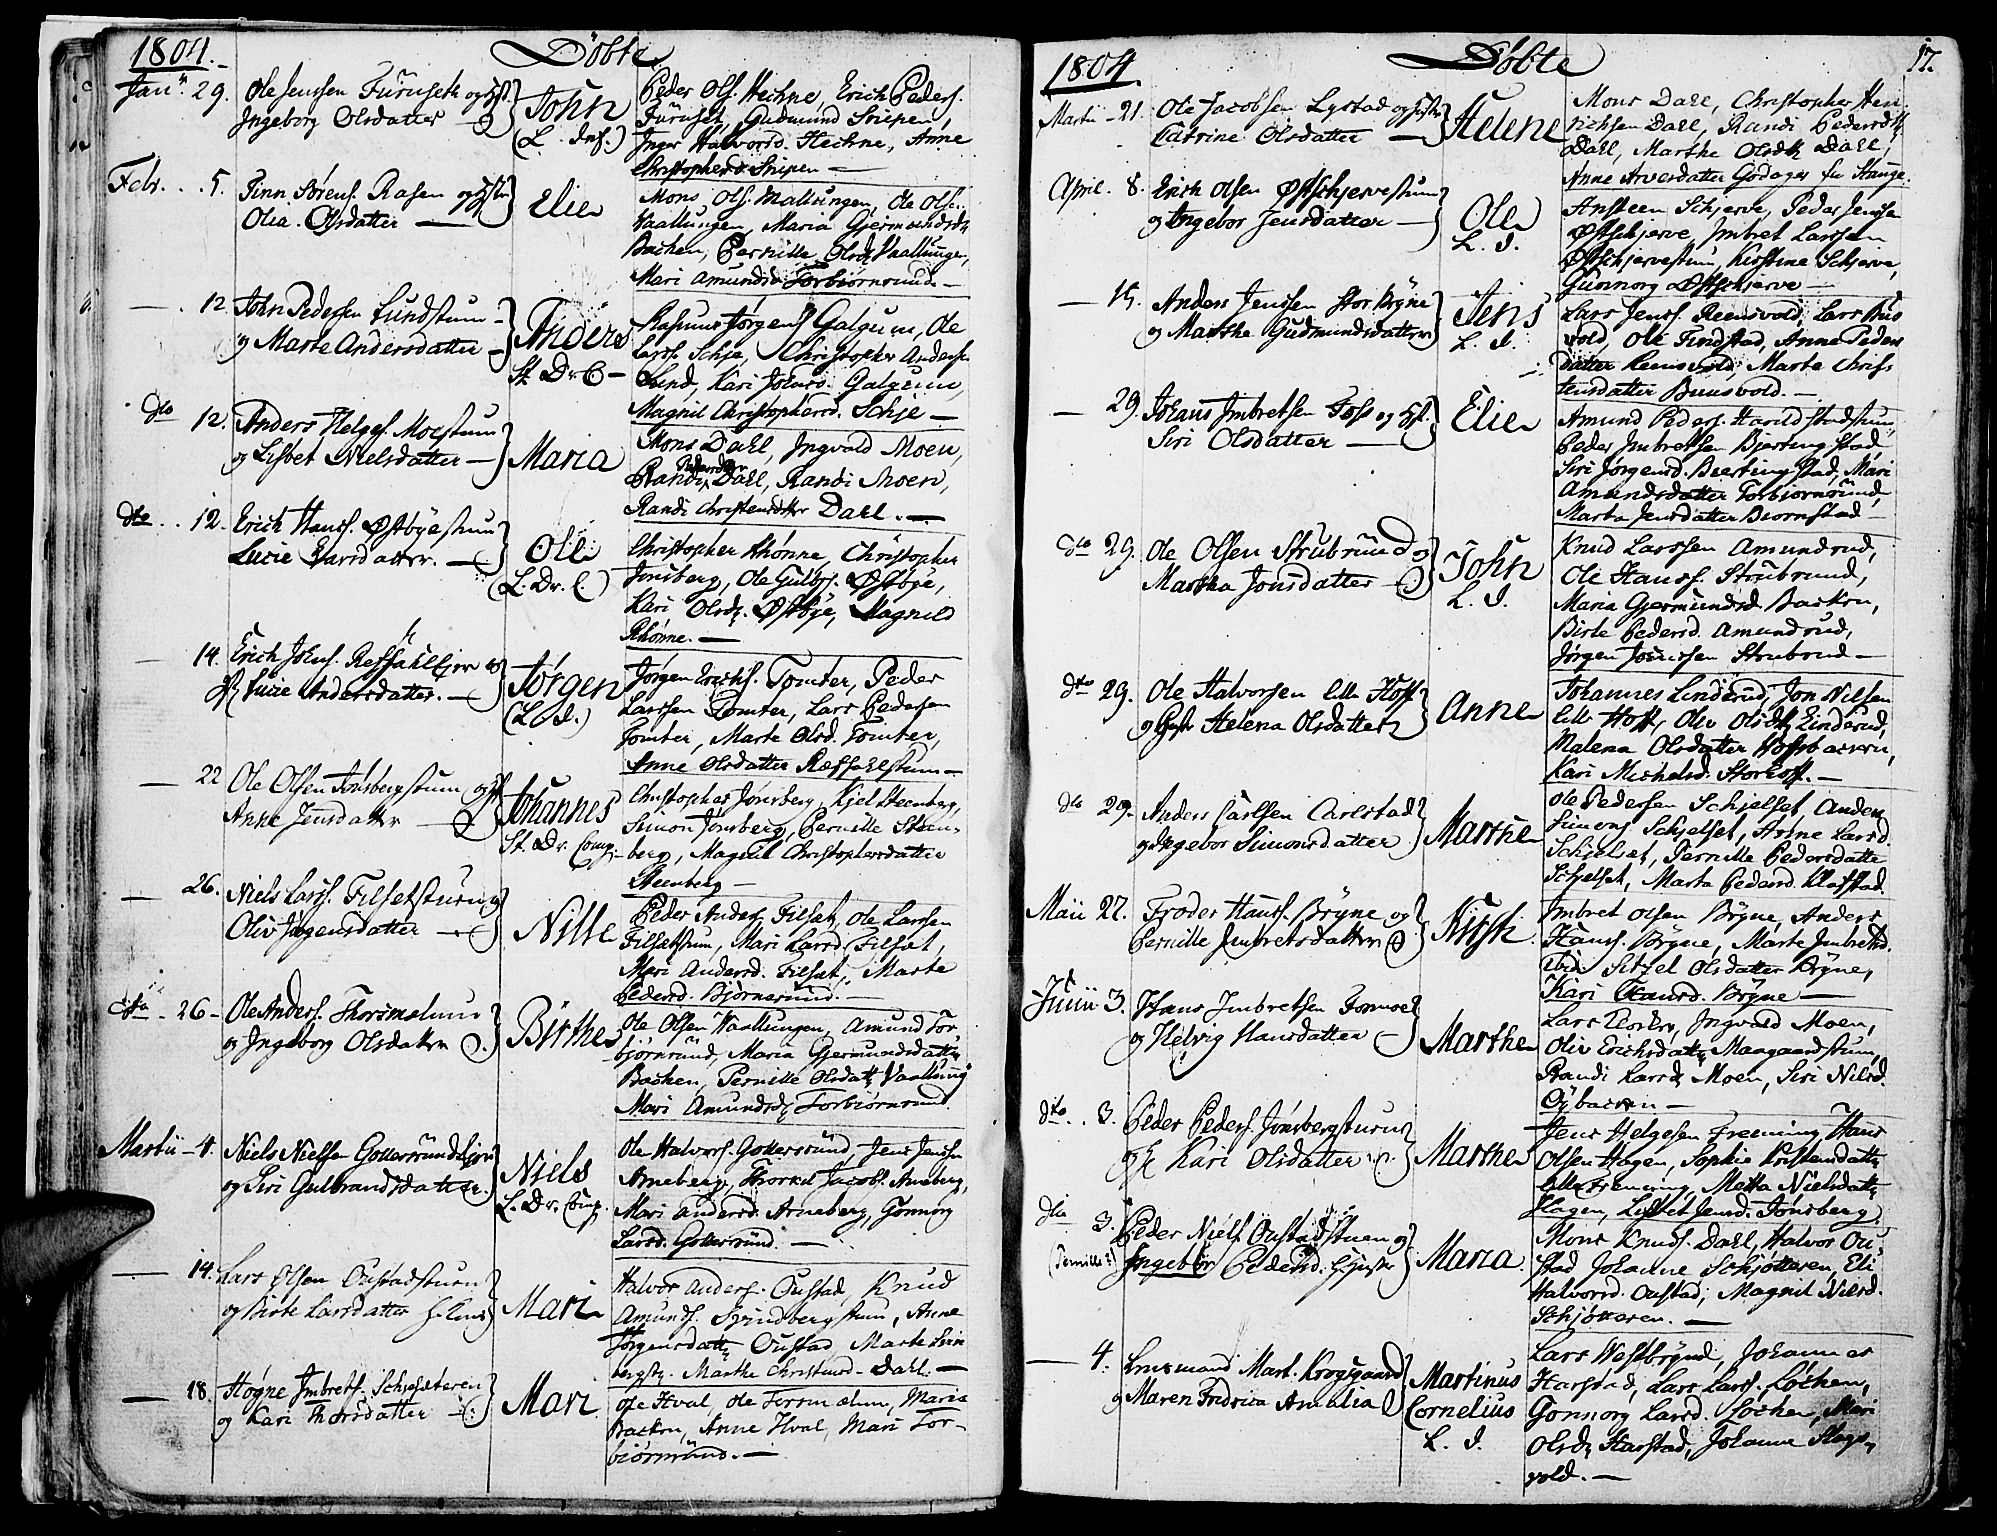 1804.
Döbte
Janr 29. Ole Jenssen Furuseth og Hst.
Ingeborg Olsdatter
John
(L. Inf.)
Peder Ols. Hechne, Erich Peders.
Furuset, Gudmund Snipen,
Inger Halvorsd. Hechne, Anne
Christophersd. Snipen
Febr. 5. Finn Sörens. Rasen og Hstr
Olea Olsdatter
Elie
Mons Ols. Mallungen, Ole Ols.
Vaallungen, Maria Gjermundsd.
Bachen, Pernille Olsd. Vaallungen,
Mari Amundsd. Torbiörnsrund
12. John Pedersen Lundstum
og Marte Andersdatter
Anders
St. Dr. C.
Rasmus Jörgens. Galgum, Ole
Larss. Schje, Christopher Anders.
Lund, Kari Johnsd. Galgum,
Magnil Christophersd. Schje
dto 12. Anders Helges. Moestuen
og Lisbet Nielsdatter
Maria
Mons Dahl, Ingvald Moen,
Randi Pedersdtr Dahl, Randi Moen,
Randi Christensdtter Dahl.
dto 12. Erich Hanss. Östbyestuen
Lucie Larsdatter
Ole
(L. Dr. C.)
Christopher Rhönne, Christopher
Jönsberg, Ole Gulbrs. Östbye,
Kari Olsd. Östbye, Magnild
Rhönne.
14. Erich Johns. Ressahlejer
Lucie Andersdatter.
Jörgen
(L. I.)
Jörgen Erichs. Tomter, Peder
Larssen Tomter, Lars Pedersen
Tomter, Marte Olsd. Tomter,
Anne Olsdatter Ræssahlstum
22 Ole Olsen Jönsbergstum og H
Anne Jensdatter
Johannes
St. Dr. Comp.
Christopher Jönsberg, Kjel Steenberg,
Simon Jönsberg, Pernille Steen-
berg, Magnil Christophersdatter
Steenberg
26. Niels Larss. Filsetstuen og
Oliv Jörgensdatter
Nille
Peder Anders. Filset, Ole Larssen
Filsetstum, Mari Larsd. Filset,
Mari Andersd. Filset, Marte
Pedersd. Björnerund.
dto 26 Ole Anders. Thorsmælum
og Ingeborg Olsdatter
Birthe
Ole Olsen Vaallungen, Amund Tor
björnrund, Maria Gjermundsdatter
Bachen, Pernille Olsdatt. Vaallung
Mari Amundsd. Torbiörnrund.
Martii 4. Niels Nielsen Gollersrundejer
og Siri Gulbrandsdatter.
Niels
L. Dr. Comp.
Ole Halvors. Gollersrund, Jens Jenssen
Arneberg, Thorkel Jacobs. Arneberg,
Mari Andersd. Arneberg, Gonnorg
Larsd. Gollersrund.
14. Lars Olsen Oustadstuen
og Birte Larsdatter
Mari
Halvor Anders. Oustad, Knud
Amunds. Spindbergstum, Anne
Jörgensdatt. Oustad, Marte Spin
bergst., Marthe Christensd. Dahl.
18. Högne Imbrets. Schjötteren
og Kari Thorsdatter
Mari
Ole Hval, Ole Torsmælum, Maria
Backen, Anne Hval, Mari Tor-
biörnrund.
1804
Döbte
17.
Martii 21. Ole Jacobsen Lystad og Hustr
Catrine Olsdatter
Helene
Mons Dahl, Christopher Hen
richsen Dahl, Randi Pedersd.
Dahl, Marthe Olsdtr Dahl,
Anne Arnesdatter Godager fra Stange.
April. 8. Erich Olsen Östschjervestum
og Ingebor Jensdatter
Ole
L. I.
Ansteen Schjerve, Peder Jenssen
Östschjerve, Imbret Larssen
Östschjervestum, Kirstine Schjerve,
Gunnorg Östschjerve
15. Anders Jenssen Stor Bryne
og Marthe Gudmundsdatter
Jens
L. I.
Lars Jenss. Reensvold, Lars Bus
vold, Ole Findstad, Anne Peders
datter Reensvold, Marte Chris
tensdatter Buusvold.
29. Johans Imbretsen Foss og Hst.
Siri Olsdatter
Elie
Amund Peders. Harildstadstum,
Peder Imbretsen Bjertingstad
Siri Jörgensd. Bjertingstad, Mari
Amundsdatter Torbiörnsrund,
Marta Jensdatter Biörnstad
dto 29. Ole Olsen Strubrund og
Martha Jonsdatter
John
L. I.
Knud Larssen Amundrud,
Ole Hanss. Strubrund,
Maria Gjermundsd. Backen,
Birte Pedersd. Amundrud,
Jörgen Jonssen Strubrud
dto 29. Ole Halvorsen Lille Hoff
og Helena Olsdatter
Anne
Johannes Linderud, Jon Nilsen
Lille Hoff, Oliv Olsdtr Linderud,
Malena Olsdatter Hofsbacken,
Kari Michelsd. Storhoff.
dto 29. Anders Carlsen Carlstad
og Ingebor Simonsdatter
Marthe
Ole Pedersen Schjelset, Anders
Simons. Schjelset, Anne Larsd.
Schjelset, Pernille Pedersdatter
Schjelset, Marta Pedersd. Klafstad.
Maii 27. Froder Hanss. Bryne og
Pernille Imbretsdatter
Kirst.
Imbret Olsen Bryne, Anders
Hanss. Bryne, Marte Imbretsd.
Ibid. Sitzel Olsdatter Bryne,
Kari Hansd. Bryne
Junii 3. Hans Imbretsen Tomoe
og Helvig Hansdatter
Marthe
Lars Clocker, Ingvald Moen,
Oliv Erichsdattr Maagaardstum,
Randi Larsd. Moen, Siri Nilsd.
Oybacken
dto 3. Peder Peders. Jönsbergstuen
og H Kari Olsdatter
Marthe
Jens Helgesen Freening, Hans
Olsen Hagen, Sophie Kristensdatt.
Lille Freening, Metta Nielsdatt.
Hagen, Lisbet Jensd. Jönsberg
dto 3. Peder Niels. Oustadstuen og
(Pernille ?) Ingebör Pedersd. Hustr
Maria
Mons Knuds. Dahl, Halvor Ou
stad, Johanne Schjötteren, Eli
Halvorsd. Oustad, Magnil Nilsd.
Schjötteren.
4. Lensmand Mart. Krogsgaard
og Maren Fridrica Amalia
Martinus
Cornelius
L. I.
Lars Westbrynd, Johannes
Harstad, Lars Larss. Lochen,
Gonnorg Larsd. Lochen, Mari
Olsd. Harstad, Johanne Slags-
vold.